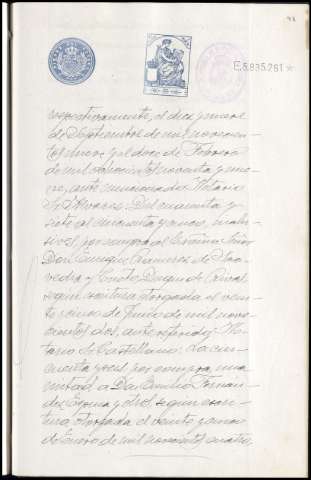 E5,835,261 *
respectivamente, el diez y nueve
de Septiembre de mil novecien-
tos nueve y el doce de Febrero
de mil ochocientos noventa y nue-
ve, ante Notario
Del cuarenta y
siete al cincuenta y
por compra al Excmo. Señor
Don Enrique Ramirez de Saa-
vedra y Cueto, Duque de Rivas
según escritura otorgada el vein-
te de Junio de mil nove-
cientos dos, ante referido No-
tario Sr. Castellano; La cin-
cuenta y por compra, una
mitad a Dn. Emilio Fernan-
dez y otros, según escri-
tura otorgada el veinte y
de Enero de mil novecientos cuatro,